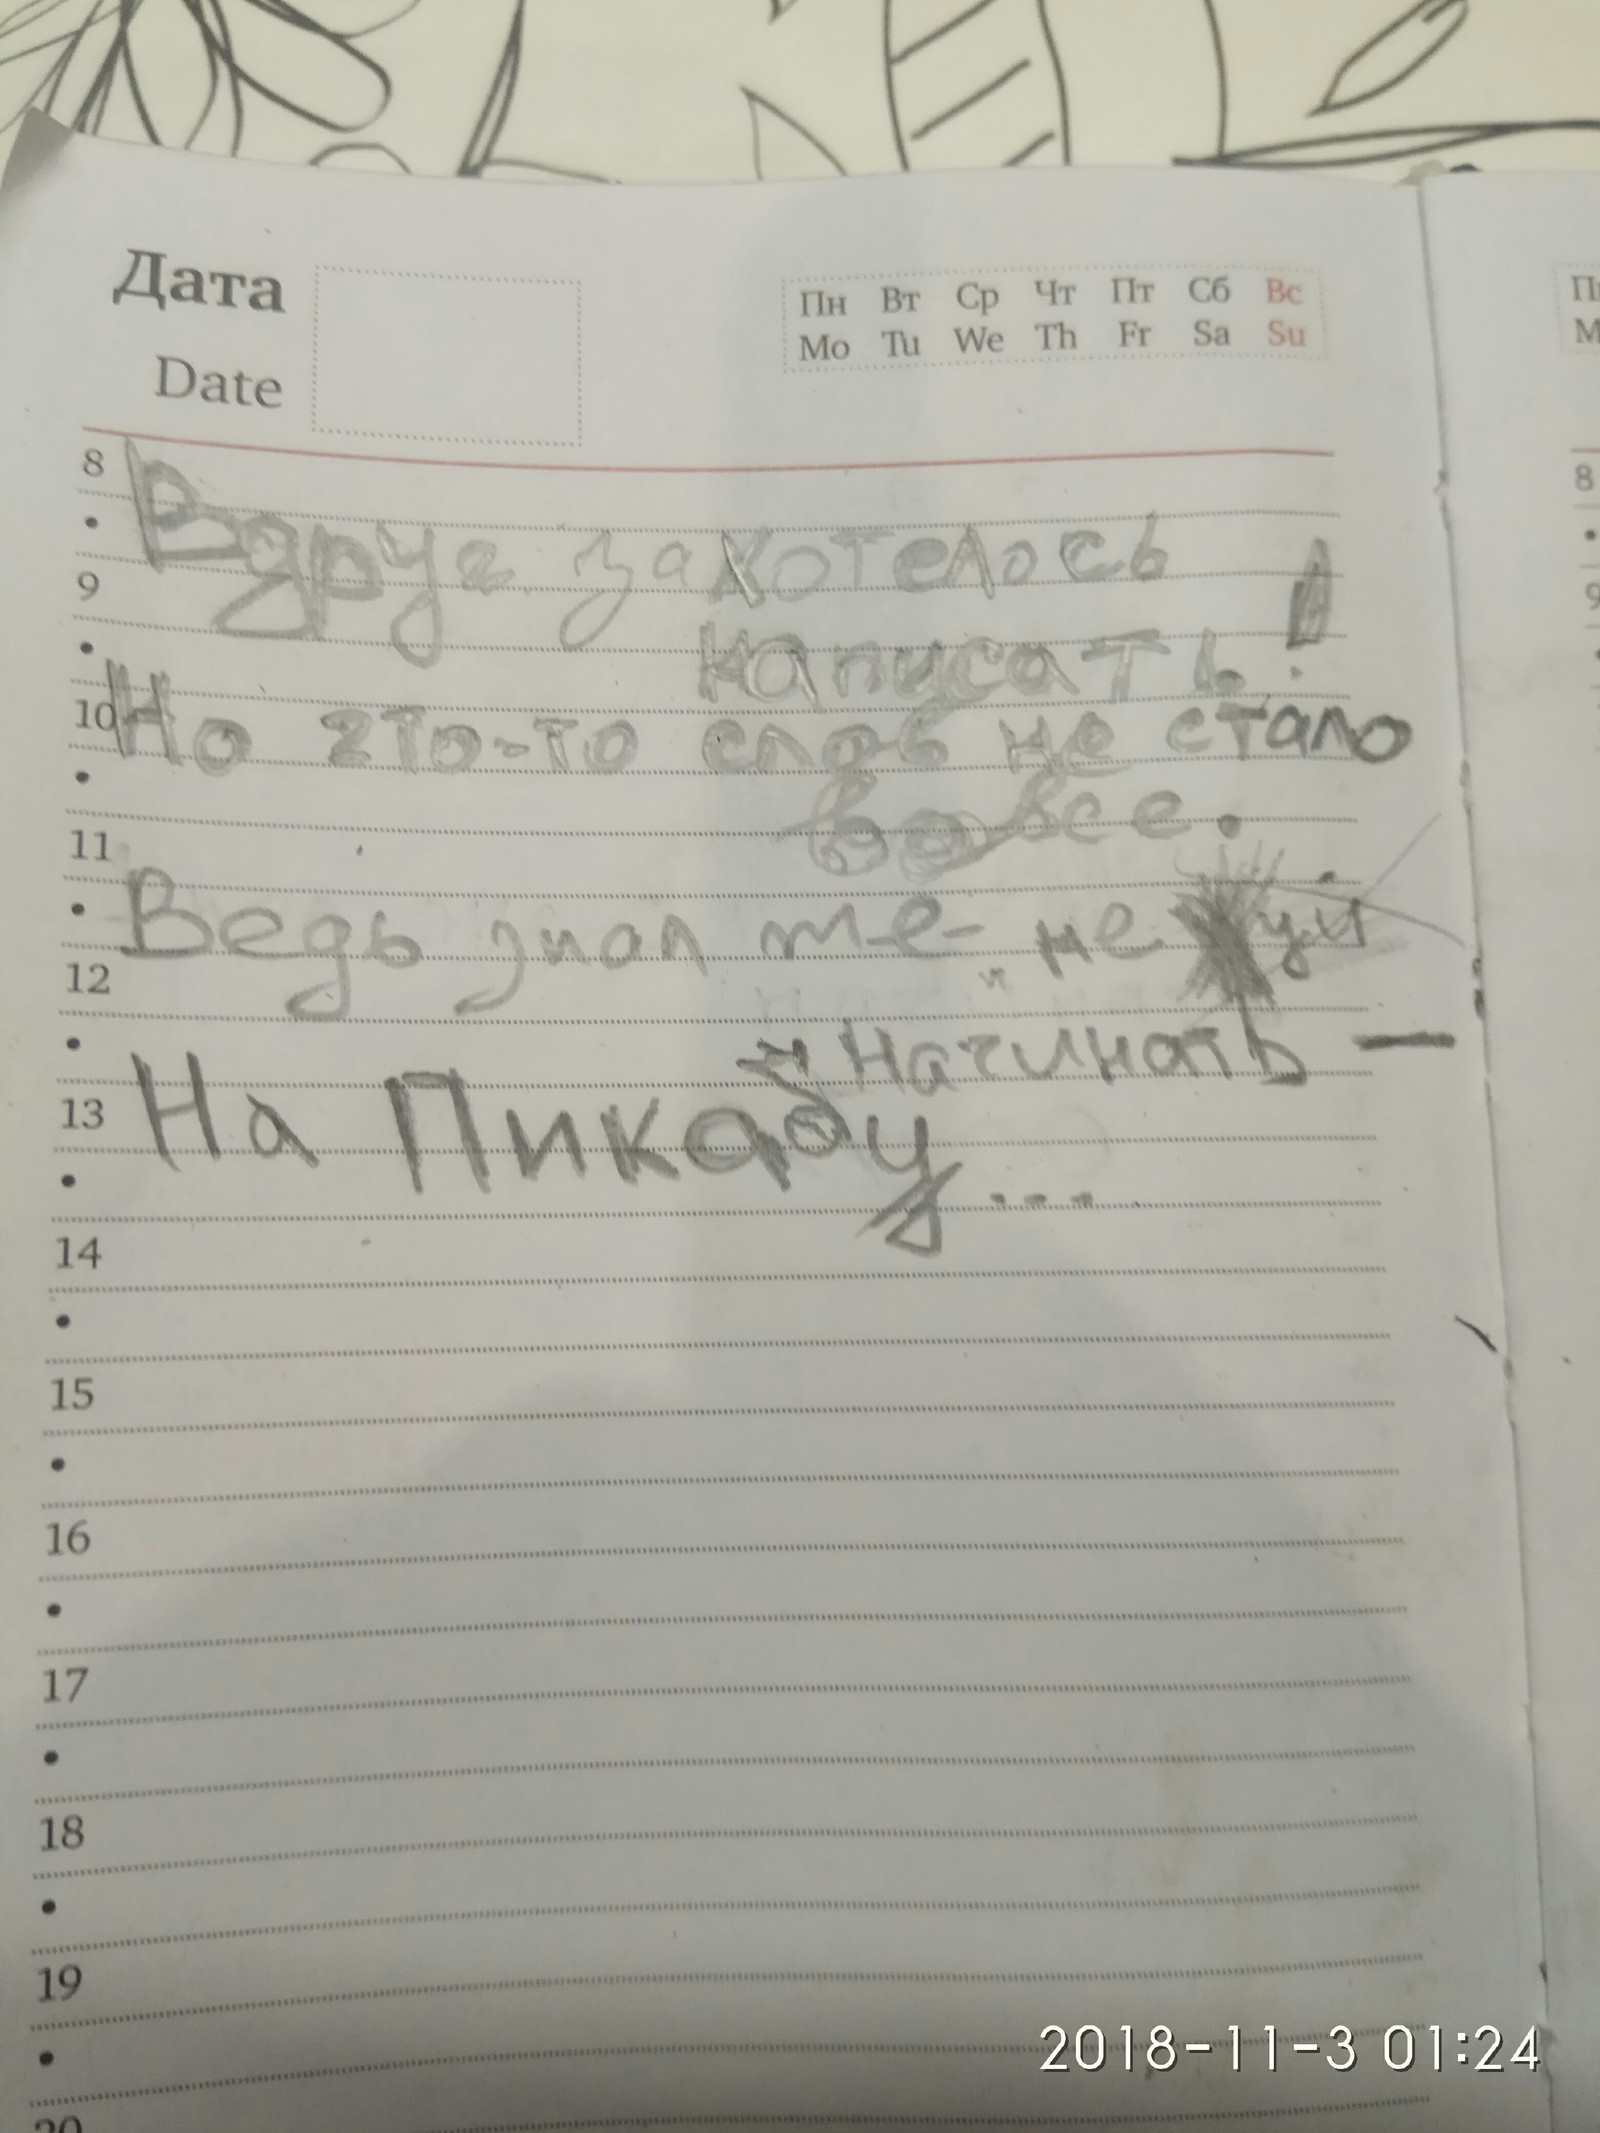 Дата
Date
Пн Вт Ср Чт Пт Сб Вс
Mo Tu We Th Fr Sa Su
8
Вдруг захотелось
9
написать!
10 Но что-то слов не стало
вовсе.
11
Ведь знал же - не
12
Начинать -
13 На Пикабу...
14
15
16
17
18
19
20
8
9
2018-11-3 01:24